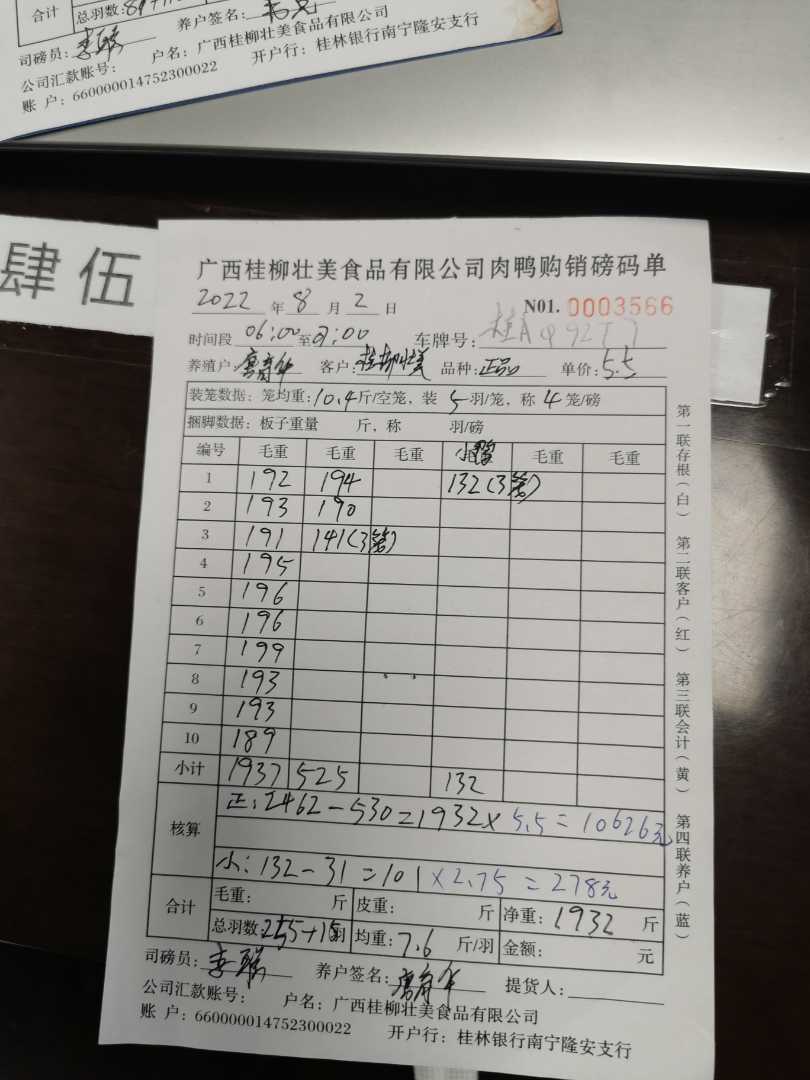 合计 总羽数:
养户签名:
司磅员: 李瑞
公司汇款账号: 户名: 广西桂柳壮美食品有限公司
账 户: 660000014752300022 开户行: 桂林银行南宁隆安支行
肆 伍
广西桂柳壮美食品有限公司肉鸭购销磅码单
2022 年 8 月 2 日 N01. 0003566
时间段 06:00 至 :00 车牌号: 桂A
养殖户: 客户: 桂柳壮美 品种: 正品 单价: 5.5
装笼数据: 笼均重: 10.4 斤/空笼, 装 5 羽/笼, 称 4 笼/磅
捆脚数据: 板子重量 斤, 称 羽/磅
编号 毛重 毛重 毛重 小鸭 毛重 毛重
1 192 194 132(3笼)
2 193 190
3 191 141(3笼)
4 195
5 196
6 196
7 199
8 193
9 193
10 189
小计 1937 525 132
核算 正: 2462-530=1932× 5.5 = 10626元
小: 132-31=101 ×2.75 = 278元
合计 毛重: 斤 皮重: 斤 净重: 1932 斤
总羽数: 255+15羽 均重: 7.6 斤/羽 金额: 元
司磅员: 李瑞 养户签名: 提货人:
公司汇款账号: 户名: 广西桂柳壮美食品有限公司
账 户: 660000014752300022 开户行: 桂林银行南宁隆安支行
第一联存根(白) 第二联客户(红) 第三联会计(黄) 第四联养户(蓝)